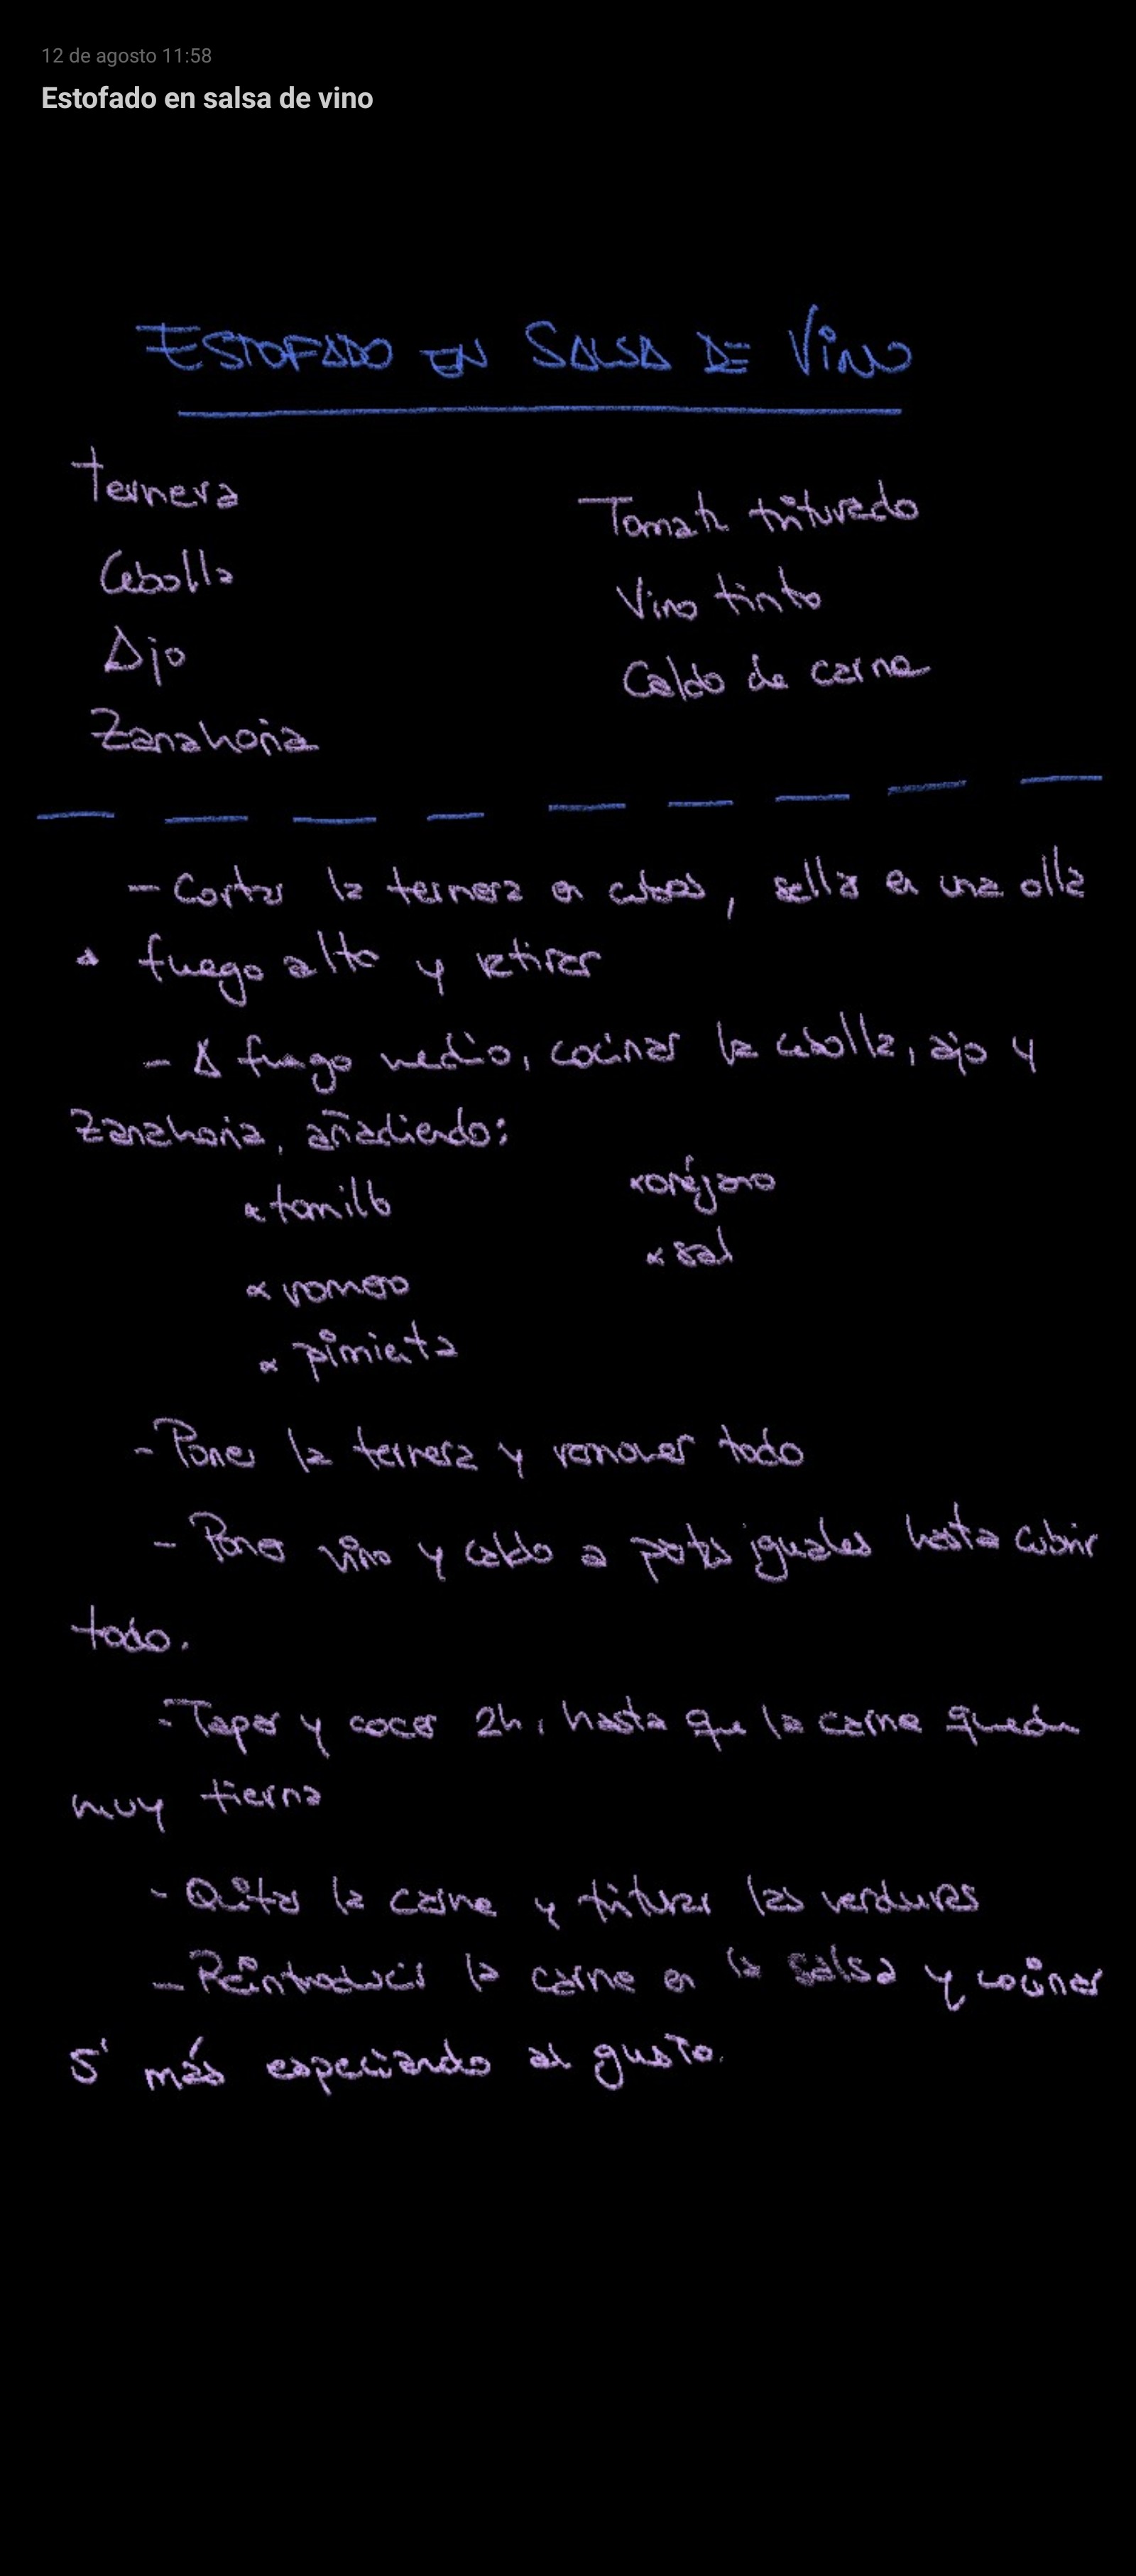 12 de agosto 11:58
Estofado en salsa de vino
ESTOFADO EN SALSA DE VINO
Ternera
Tomate triturado
Cebolla
Vino tinto
Ajo
Caldo de carne
Zanahoria
- Cortar la ternera en cubos, sella en una olla
a fuego alto y retirar
- A fuego medio, cocinar la cebolla, ajo y
zanahoria, añadiendo:
tomillo
orégano
sal
romero
pimienta
- Poner la ternera y remover todo
- Poner vino y caldo a partes iguales hasta cubrir
todo.
- Tapar y cocer 2h, hasta que la carne quede
muy tierna
- Quitar la carne y triturar las verduras
- Reintroducir la carne en la salsa y cocinar
5' más especiando al gusto.